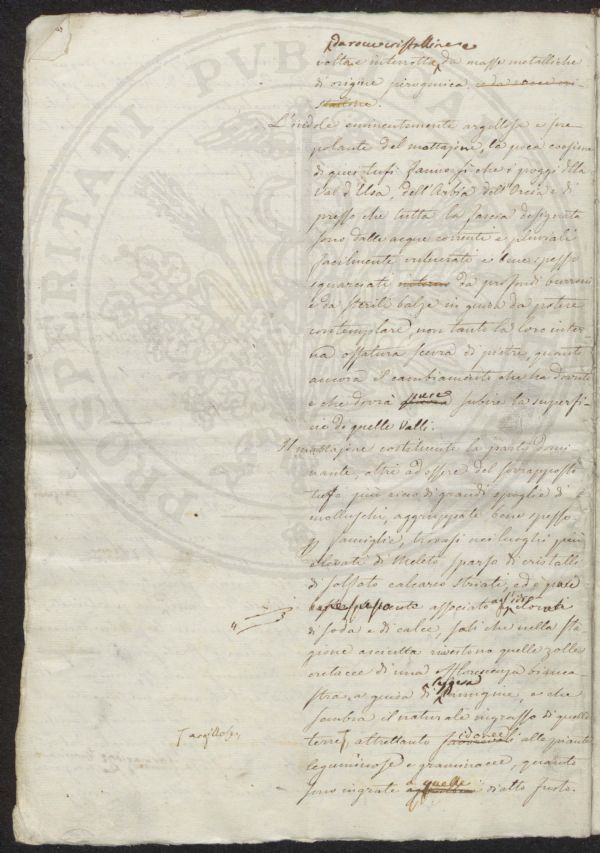 da rocce cristalline e
volta e interrotta da masse metalliche
di origine pirogenica, e da rocce cri-
stalline.
L'indole eminentemente argillosa e
del mattajone, la poca coesione
di quei tufi fanno sì che i poggi della
Val d'Elsa, dell'Arbia dell'Orcia e di
presso che tutta la fascia designata
sono dalle acque correnti e pluviali
facilmente e bene spesso
squarciati da profondi burroni
e da sterili balze in guisa da potere
contemplare, non tanto la loro inter
na ossatura scevra di pietre, quanto
ancora il cambiamento che ha dovuto
e che dovrà pure subire la superfi-
cie di quelle Valli.
Il mattajone costituente la parte domi
nante, oltre ad essere del sovrapposto
tufo più ricco di grandi spoglie di
molluschi, aggruppate bene spesso
famiglie, trovasi nei luoghi più
elevati di Meleto sparso di cristalli
di solfato calcareo striati, ed è pure
spesso associato agl'idroclorati
di soda e di calce, sali che nella sta
gione asciutta rivestono quelle zolle
cretacee di una efflorescenza bianca
stra, a guisa di leggera brinugine, e che
sembra il naturale ingrasso di quelle
terre argillose, altrettanto idonee alle piante
leguminose e graminacee, quanto
sono ingrate a quelle di alto fusto.